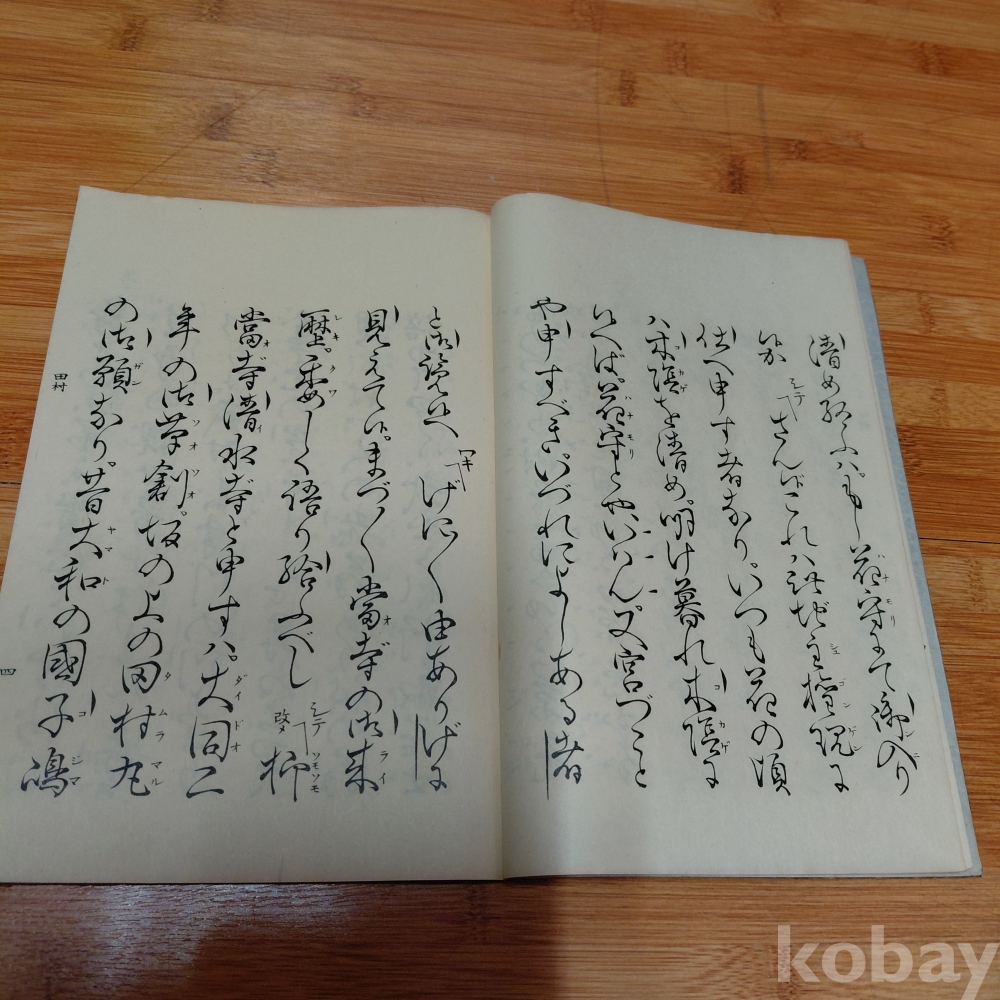 清め給ふハ。もし花守にて御入り
候か シテ「さん候これハ此地主権現に
仕へ申す者なり。いつも花の頃
ハ木蔭を清め。明け暮れ木蔭に
候へば。花守とやいはん又宮づこと
や申すべき。いづれによしある者
と御覧候へ ワキ「げに〳〵由ありげに
見えて候。まづ〳〵當寺の御来
歴。委しく語り給ふべし シテ「改メ 抑
當寺清水寺と申すハ。大同二
年の御草創。坂の上の田村丸
の御願なり。昔大和の國子嶋
田村
四
kobay